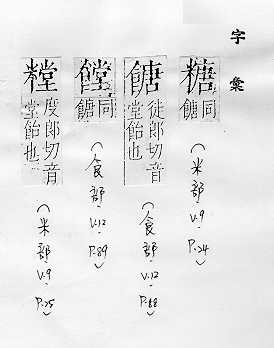 字彙
糖 同餹
（米部，V.9，P.24）
餹 徒郎切音堂飴也
（食部，V.12，P.88）
餳 同餹
（食部，V.12，P.89）
糛 度郎切音堂飴也
（米部，V.9，P.25）